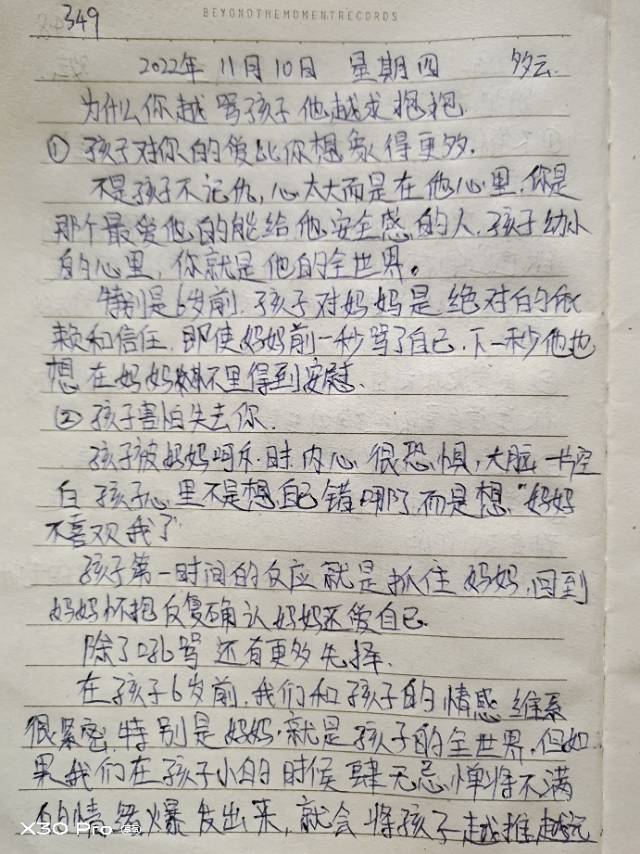 BEYONDTHEMOMENTRECORDS
349
2022年 11月10日 星期四 多云
为什么你越骂孩子他越求抱抱
① 孩子对你的爱比你想象得更多.
不是孩子不记仇,心太大而是在他心里,你是
那个最爱他的能给他安全感的人.孩子幼小
的心里,你就是他的全世界。
特别是6岁前.孩子对妈妈是绝对的依
赖和信任,即使妈妈前一秒骂了自己,下一秒他也
想在妈妈怀里得到安慰.
② 孩子害怕失去你.
孩子被妈妈呵斥时内心很恐惧,大脑一片空
白 孩子心里不是想自己错哪了,而是想,“妈妈
不喜欢我了
孩子第一时间的反应就是抓住妈妈,回到
妈妈怀抱反复确认妈妈还爱自己.
除了吼骂还有更多选择.
在孩子6岁前,我们和孩子的情感维系
很紧密,特别是妈妈.就是孩子的全世界,但如
果我们在孩子小的时候肆无忌惮将不满
的情绪爆发出来,就会将孩子越推越远
X30 Pro